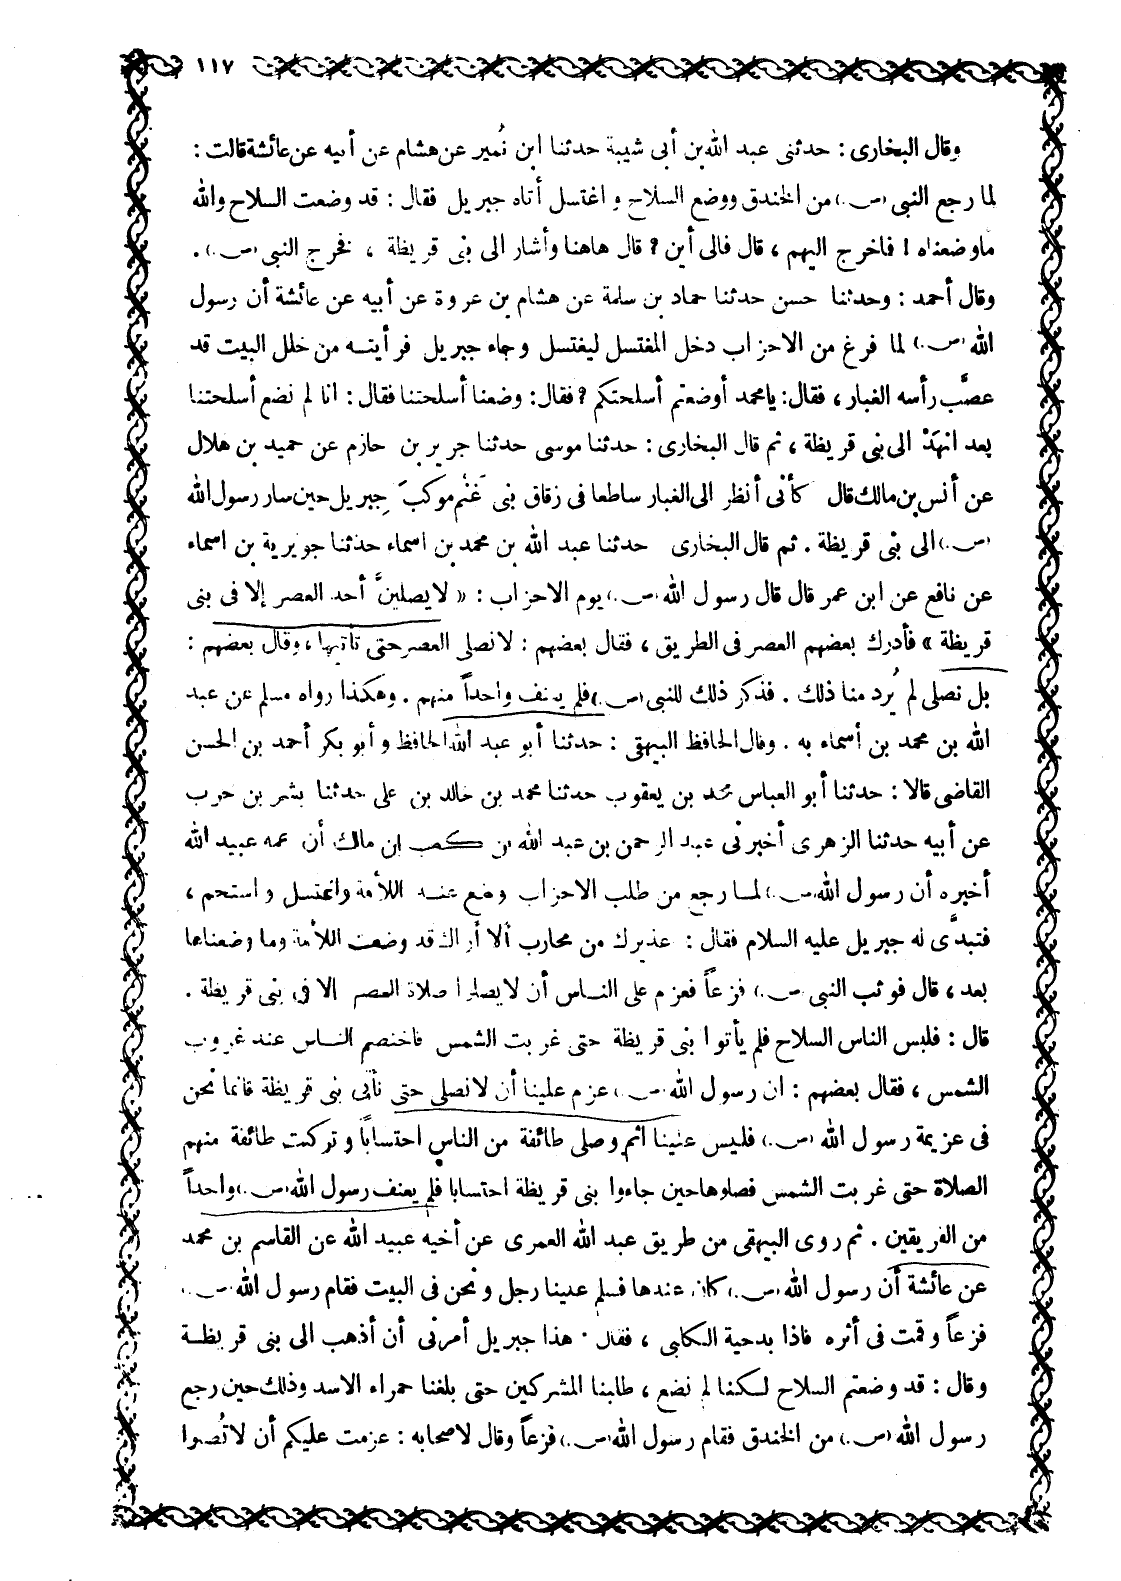 ١١٧
وقال البخارى : حدثنى عبد الله بن أبى شيبة حدثنا ابن نُمير عن هشام عن أبيه عن عائشة قالت :
لما رجع النبى (ص.) من الخندق ووضع السلاح واغتسل أتاه جبريل فقال : قد وضعت السلاح والله
ماوضعناه ! فاخرج اليهم ، قال فالى أين ? قال هاهنا وأشار الى بنى قريظة ، فخرج النبى (ص.) .
وقال أحمد : وحدثنا حسن حدثنا حماد بن سلمة عن هشام بن عروة عن أبيه عن عائشة أن رسول
الله (ص.) لما فرغ من الاحزاب دخل المغتسل ليغتسل وجاء جبريل فرأيته من خلل البيت قد
عصَّب رأسه الغبار ، فقال: يامحمد أوضعتم أسلحتكم ? فقال: وضعنا أسلحتنا فقال : انا لم نضع أسلحتنا
بعد انهَدْ الى بنى قريظة ، ثم قال البخارى : حدثنا موسى حدثنا جرير بن حازم عن حميد بن هلال
عن أنس بن مالك قال كأنى أنظر الى الغبار ساطعا فى زقاق بنى غَنْم موكبَ جبريل حين سار رسول الله
(ص.) الى بنى قريظة . ثم قال البخارى حدثنا عبد الله بن محمد بن اسماء حدثنا جويرية بن اسماء
عن نافع عن ابن عمر قال قال رسول الله (ص.) يوم الاحزاب : « لايصلينَّ أحد العصر إلا فى بنى
قريظة » فأدرك بعضهم العصر فى الطريق ، فقال بعضهم : لا نصلى العصر حتى نأتيها ، وقال بعضهم :
بل نصلى لم يُرد منا ذلك . فذكر ذلك للنبى (ص.) فلم يعنف واحداً منهم . وهكذا رواه مسلم عن عبد
الله بن محمد بن أسماء به . وقال الحافظ البيهقى : حدثنا أبو عبد الله الحافظ وأبو بكر أحمد بن الحسن
القاضى قالا : حدثنا أبو العباس محمد بن يعقوب حدثنا محمد بن خالد بن على حدثنا بشر بن حرب
عن أبيه حدثنا الزهرى أخبرنى عبد الرحمن بن عبد الله بن كعب ابن مالك أن عمه عبيد الله
أخبره أن رسول الله (ص.) لما رجع من طلب الاحزاب وضع عنه اللأمة واغتسل واستحم ،
فتبدَّى له جبريل عليه السلام فقال : عذيرك من محارب ألا أراك قد وضعت اللأمة وما وضعناها
بعد ، قال فوثب النبى (ص.) فزعاً فعزم على الناس أن لايصلوا صلاة العصر الا فى بنى قريظة .
قال : فلبس الناس السلاح فلم يأتوا بنى قريظة حتى غربت الشمس فاختصم الناس عند غروب
الشمس ، فقال بعضهم : ان رسول الله (ص.) عزم علينا أن لا نصلى حتى نأتى بنى قريظة فانما نحن
فى عزيمة رسول الله (ص.) فليس علينا اثم وصلى طائفة من الناس احتسابًا وتركت طائفة منهم
الصلاة حتى غربت الشمس فصلوها حين جاءوا بنى قريظة احتسابا فلم يعنف رسول الله (ص.) واحداً
من الفريقين . ثم روى البيهقى من طريق عبد الله العمرى عن أخيه عبيد الله عن القاسم بن محمد
عن عائشة أن رسول الله (ص.) كان عندها فسلم علينا رجل ونحن فى البيت فقام رسول الله (ص.)
فزعاً وقمت فى أثره فاذا بدحية الكلبى ، فقال : هذا جبريل أمرنى أن أذهب الى بنى قريظة
وقال : قد وضعتم السلاح لكنا لم نضع ، طلبنا المشركين حتى بلغنا حمراء الاسد وذلك حين رجع
رسول الله (ص.) من الخندق فقام رسول الله (ص.) فزعاً وقال لاصحابه : عزمت عليكم أن لا تُصلوا